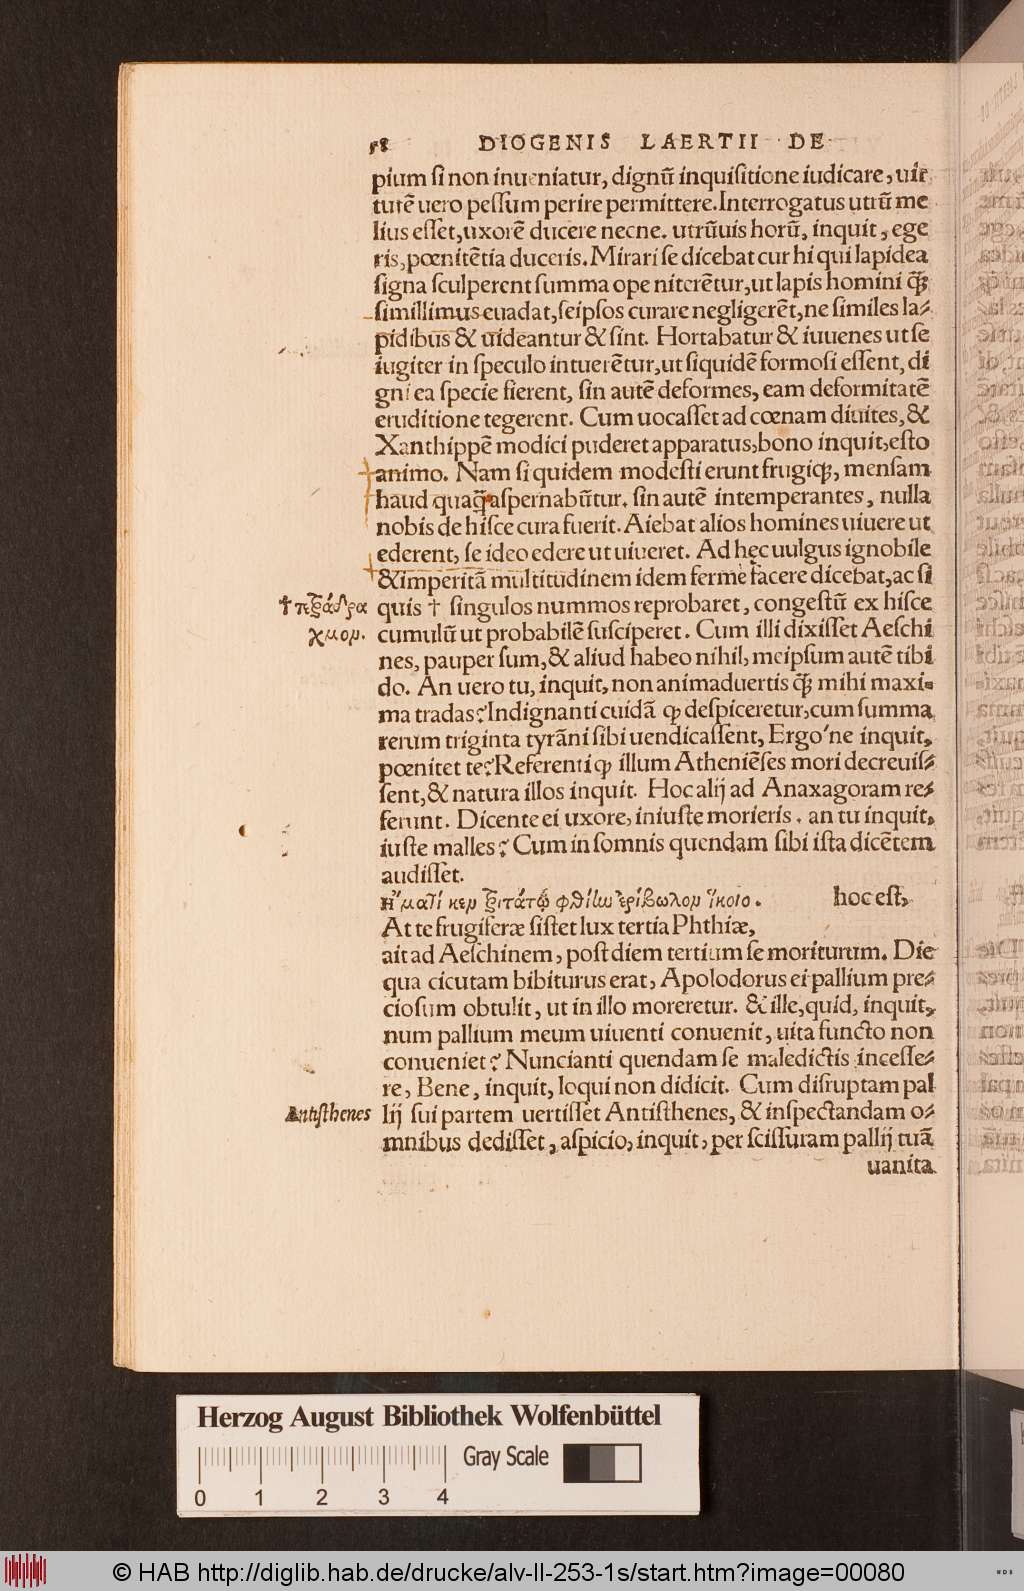 58 DIOGENIS LAERTII DE
pium si non inueniatur, dignũ inquisitione iudicare, uir
tutẽ uero pessum perire permittere. Interrogatus utrũ me
lius esset, uxorẽ ducere necne. utrũuis horũ, inquit, ege
ris, pœnitẽtia duceris. Mirari se dicebat cur hi qui lapidea
signa sculperent summa ope niterẽtur, ut lapis homini q̃
simillimus euadat, seipsos curare negligerẽt, ne similes la⸗
pidibus & uideantur & sint. Hortabatur & iuuenes ut se
iugiter in speculo intuerẽtur, ut siquidẽ formosi essent, di
gni ea specie fierent, sin autẽ deformes, eam deformitatẽ
eruditione tegerent. Cum uocasset ad cœnam diuites, &
Xanthippẽ modici puderet apparatus, bono inquit, esto
animo. Nam si quidem modesti erunt frugiq́;, mensam
haud quaq̃ aspernabũtur. sin autẽ intemperantes, nulla
nobis de hisce cura fuerit. Aiebat alios homines uiuere ut
ederent, se ideo edere ut uiueret. Ad hęc uulgus ignobile
& imperitã multitudinem idem ferme facere dicebat, ac si
† τετράδρα quis † singulos nummos reprobaret, congestũ ex hisce
χμον. cumulũ ut probabilẽ susciperet. Cum illi dixisset Aeschi
nes, pauper sum, & aliud habeo nihil, meipsum autẽ tibi
do. An uero tu, inquit, non animaduertis q̃ mihi maxi⸗
ma tradas? Indignanti cuidã ꝙ despiceretur, cum summa
rerum triginta tyrãni sibi uendicassent, Ergo'ne inquit,
pœnitet te? Referenti ꝙ illum Atheniẽses mori decreuis⸗
sent, & natura illos inquit. Hoc alij ad Anaxagoram re⸗
ferunt. Dicente ei uxore, iniuste morieris. an tu inquit,
iuste malles? Cum in somnis quendam sibi ista dicẽtem
audisset.
Ἤματί κεν τριτάτῳ φθίην ἐρίβωλον ἵκοιο. hoc est,
At te frugiferæ sistet lux tertia Phthiæ,
ait ad Aeschinem, post diem tertium se moriturum. Die
qua cicutam bibiturus erat, Apolodorus ei pallium pre⸗
ciosum obtulit, ut in illo moreretur. & ille, quid, inquit,
num pallium meum uiuenti conuenit, uita functo non
conueniet? Nuncianti quendam se maledictis incesse⸗
re, Bene, inquit, loqui non didicit. Cum disruptam pal
Antisthenes lij sui partem uertisset Antisthenes, & inspectandam o⸗
mnibus dedisset, aspicio, inquit, per scissuram pallij tuã
uanita
Herzog August Bibliothek Wolfenbüttel
Gray Scale
0 1 2 3 4
© HAB http://diglib.hab.de/drucke/alv-ll-253-1s/start.htm?image=00080